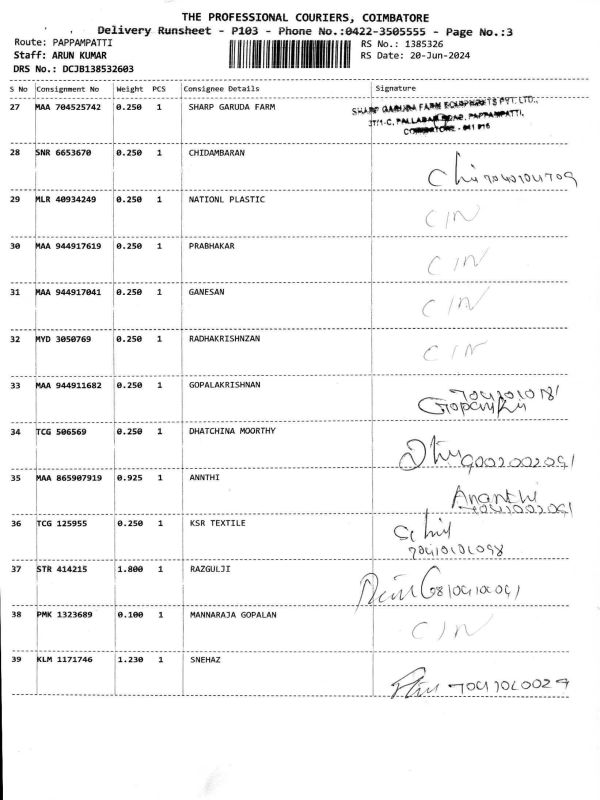 THE PROFESSIONAL COURIERS, COIMBATORE
Delivery Runsheet - P103 - Phone No.:0422-3505555 - Page No.:3
Route: PAPPAMPATTI RS No.: 1385326
Staff: ARUN KUMAR RS Date: 20-Jun-2024
DRS No.: DCJB138532603
S No Consignment No Weight PCS Consignee Details Signature
27 MAA 704525742 0.250 1 SHARP GARUDA FARM SHARP GARUDA FARM EQUIPMENTS PVT. LTD.,
37/1-C, PALLADAM ROAD, PAPPAMPATTI,
COIMBATORE - 641 016
28 SNR 6653670 0.250 1 CHIDAMBARAN
29 MLR 40934249 0.250 1 NATIONL PLASTIC C/N
30 MAA 944917619 0.250 1 PRABHAKAR C/N
31 MAA 944917041 0.250 1 GANESAN C/N
32 MYD 3050769 0.250 1 RADHAKRISHNZAN C/N
33 MAA 944911682 0.250 1 GOPALAKRISHNAN
34 TCG 506569 0.250 1 DHATCHINA MOORTHY
35 MAA 865907919 0.925 1 ANNTHI Ananthi
36 TCG 125955 0.250 1 KSR TEXTILE
37 STR 414215 1.800 1 RAZGULJI
38 PMK 1323689 0.100 1 MANNARAJA GOPALAN C/N
39 KLM 1171746 1.230 1 SNEHAZ